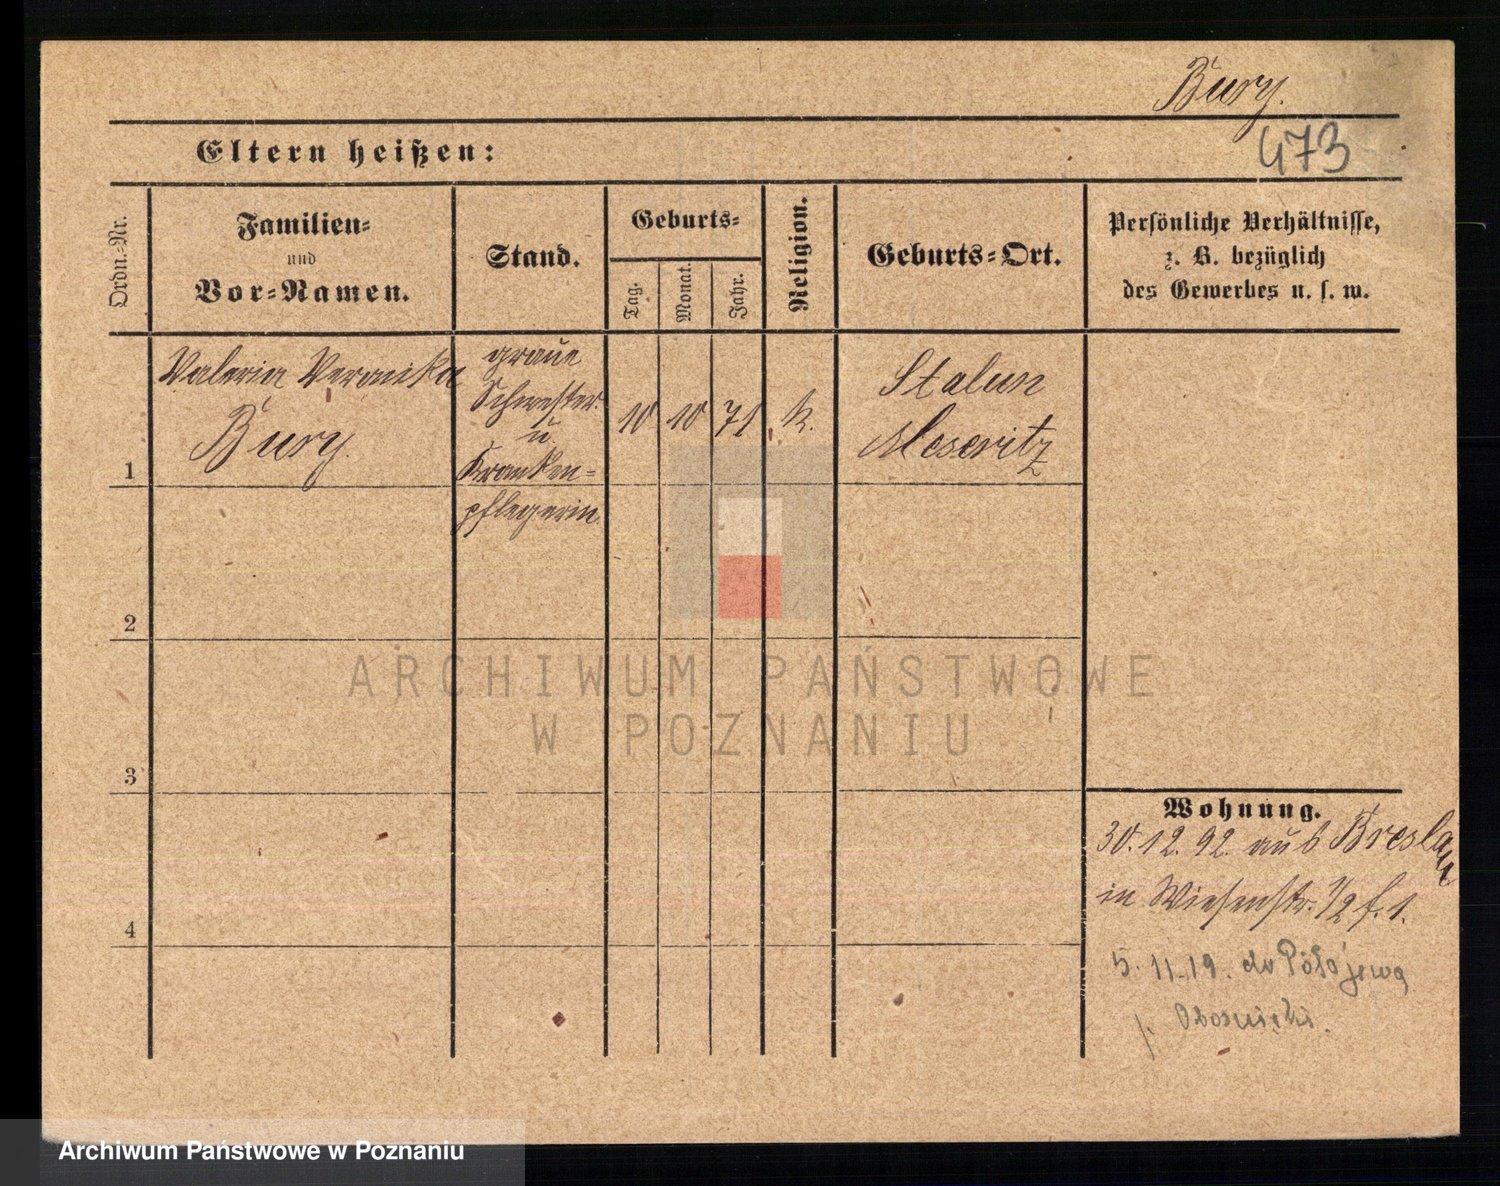 Bury.
473
Eltern heißen:
Ordn.-Nr.
Familien-
und
Vor-Namen.
Stand.
Geburts-
Tag.
Monat.
Jahr.
Religion.
Geburts-Ort.
Persönliche Verhältnisse,
z. B. bezüglich
des Gewerbes u. s. w.
1
Valeria Veronika
Bury.
graue
Schwester
u.
Kranken=
pflegerin.
10 10 71
k.
Stalun
Meseritz
2
3
4
ARCHIWUM PAŃSTWOWE
W POZNANIU
Wohnung.
30.12.92. aus Breslau
in Wiesenstr. 1/2 f. 1.
5.11.19. do
Archiwum Państwowe w Poznaniu